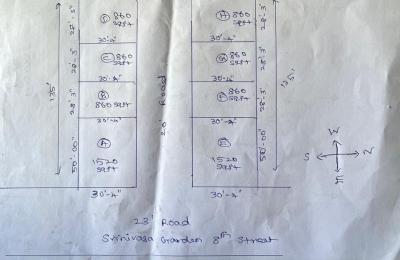 D 860 sqft
H 860 sqft
28'-3"
28'-3"
30'-4"
C 860 sqft
G 860 sqft
28'-3"
28'-3"
30'-4"
30'-4"
135'
135'
B 860 sqft
F 860 sqft
28'-3"
28'-3"
30'-4"
30'-4"
20 Road
A
E
1520 sqft
1520 sqft
50'-00"
50'-00"
W
S
N
E
30'-4"
30'-4"
23' Road
Srinivasa Garden 8th Street